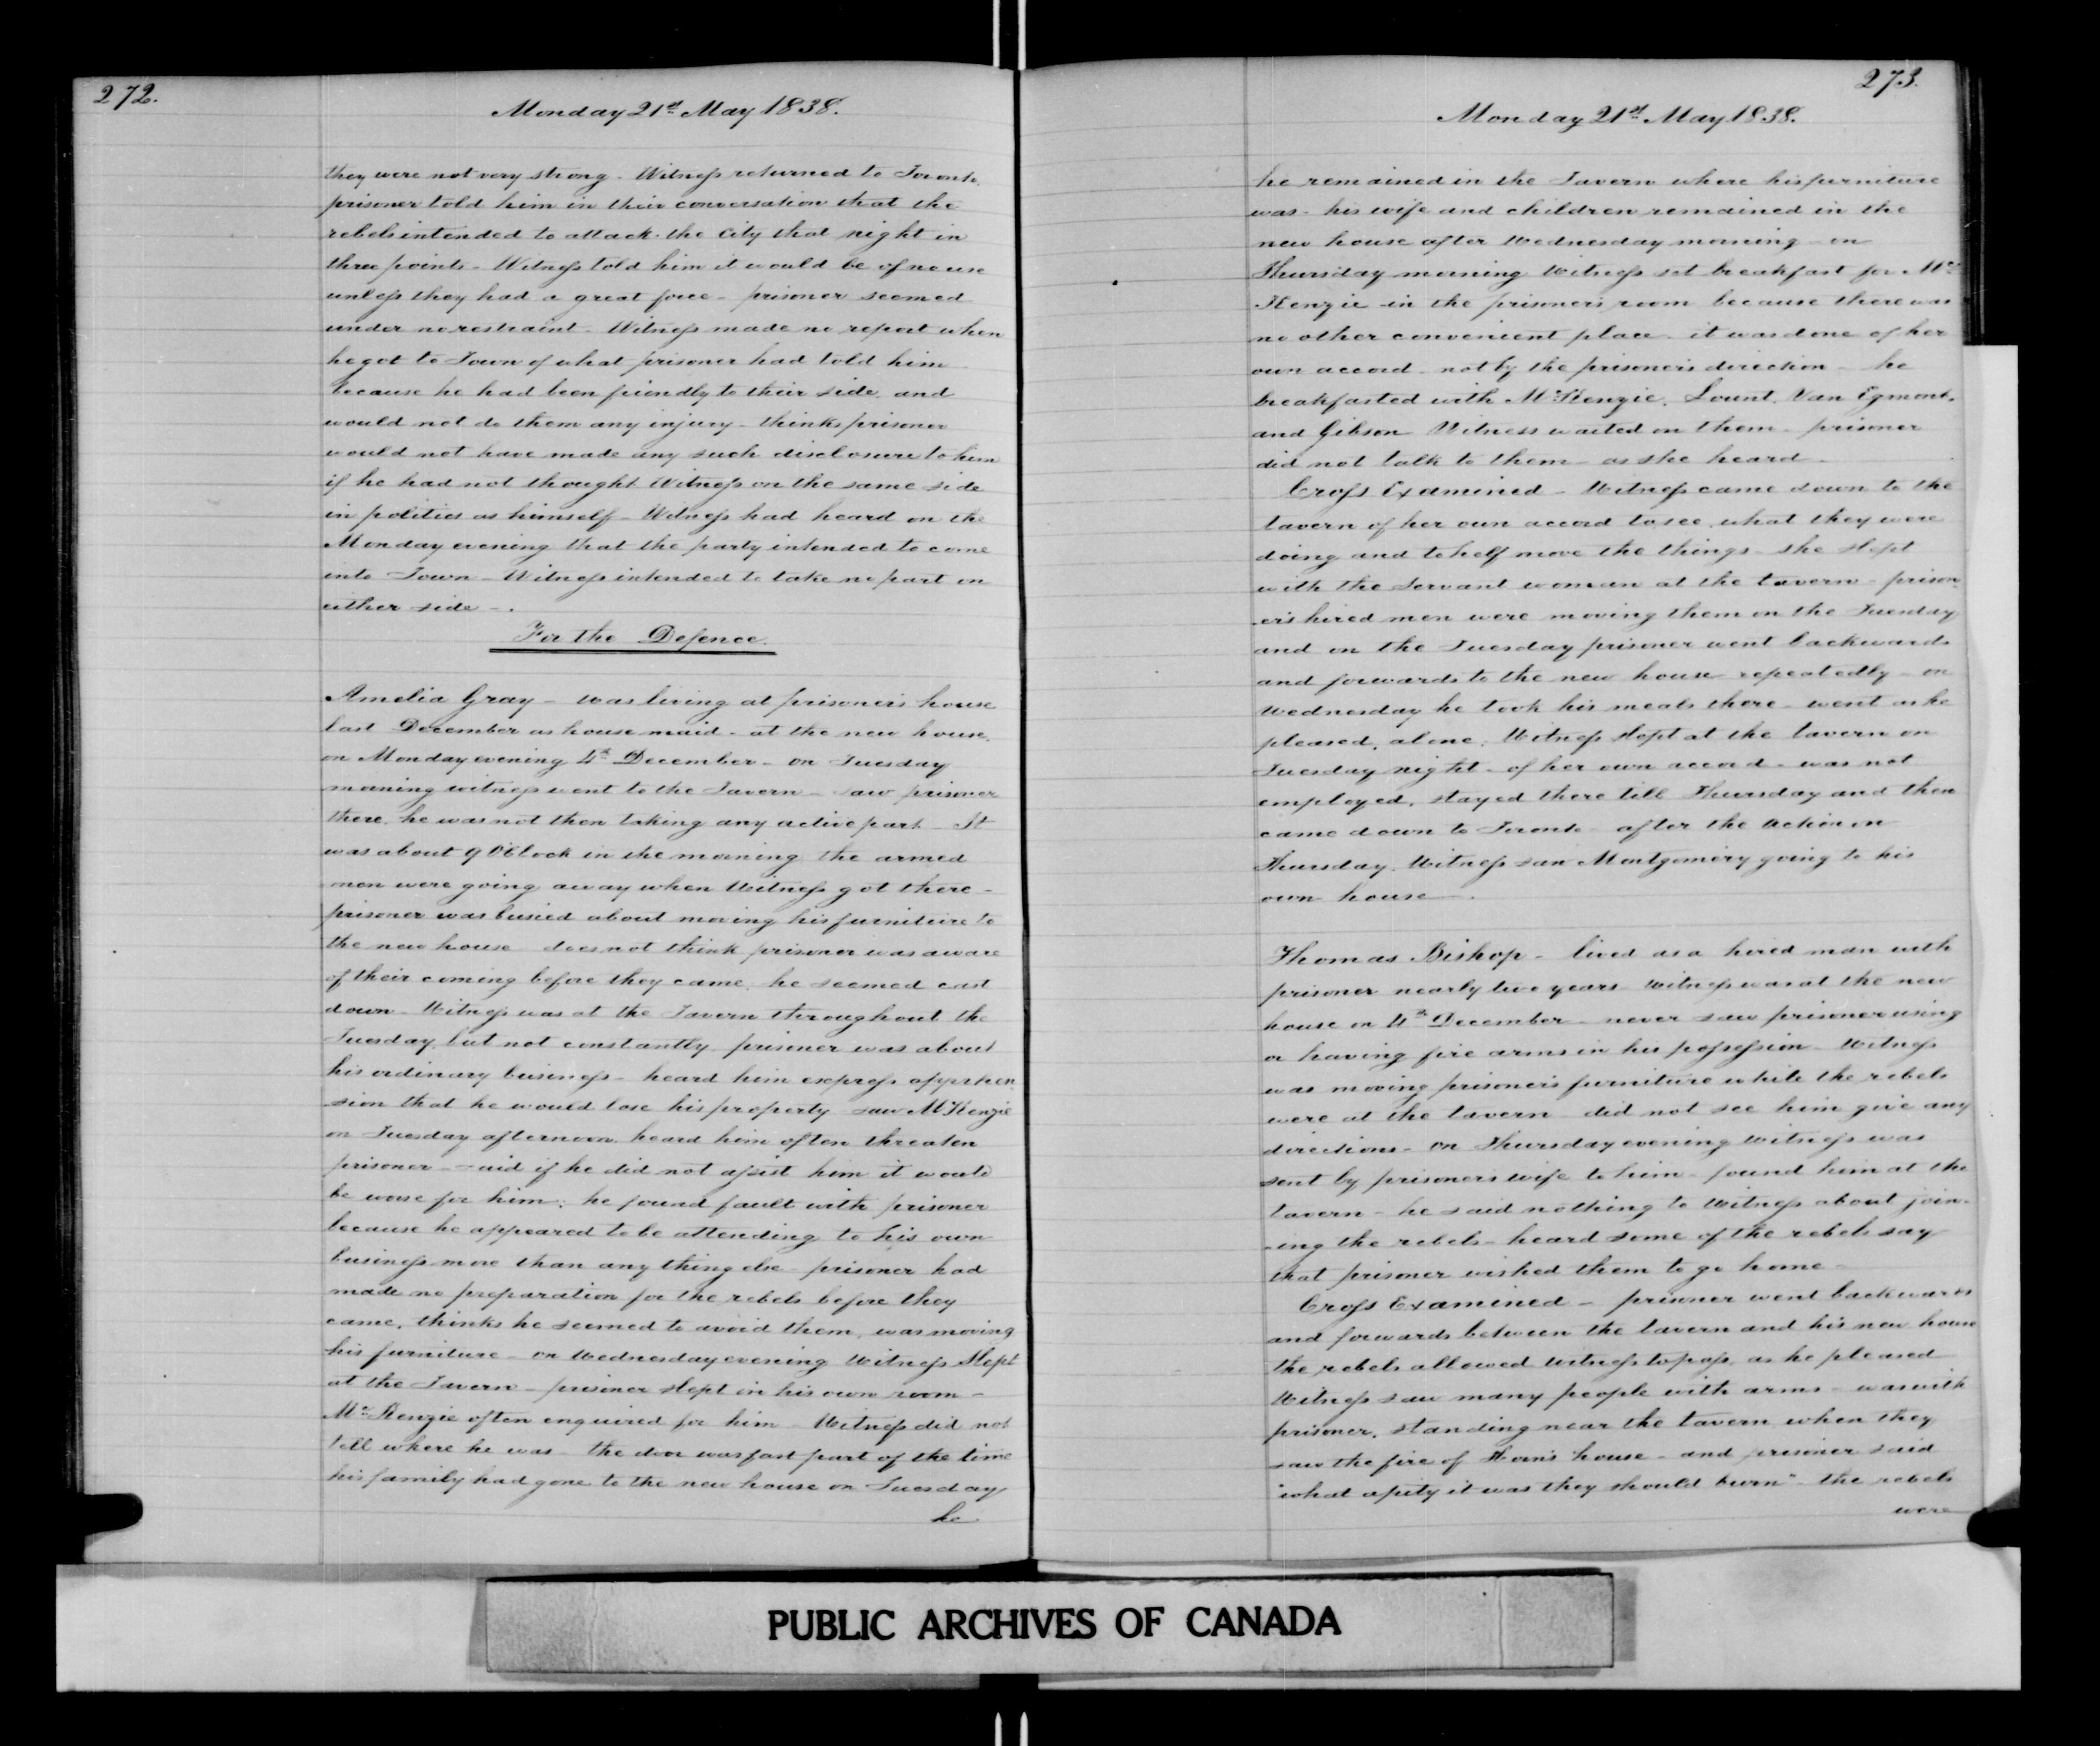 272.
Monday 21st May 1838.
they were not very strong - Witness returned to Toronto
prisoner told him in their conversation that the
rebels intended to attack the City that night in
three points - Witness told him it would be of no use
unless they had a great force - prisoner seemed
under no restraint - Witness made no report when
he got to Town of what prisoner had told him
because he had been friendly to their side, and
would not do them any injury - thinks prisoner
would not have made any such disclosure to him
if he had not thought Witness on the same side
in politics as himself - Witness had heard on the
Monday evening that the party intended to come
into Town - Witness intended to take no part on
either side - .
For the Defence.
Amelia Gray - was living at prisoner's house
last December as house maid - at the new house,
on Monday evening 4th December - on Tuesday
morning witness went to the Tavern - saw prisoner
there, he was not then taking any active part - It
was about 9 O'Clock in the morning, the armed
men were going away when Witness got there -
prisoner was busied about moving his furniture to
the new house does not think prisoner was aware
of their coming before they came, he seemed cast
down - Witness was at the Tavern throughout the
Tuesday, but not constantly, prisoner was about
his ordinary business - heard him express apprehen
-sion that he would lose his property - saw McKenzie
on Tuesday afternoon, heard him often threaten
prisoner - said if he did not assist him it would
be worse for him; he found fault with prisoner
because he appeared to be attending to his own
business more than any thing else - prisoner had
made no preparation for the rebels before they
came, thinks he seemed to avoid them, was moving
his furniture - on Wednesday evening Witness slept
at the Tavern - prisoner slept in his own room -
McKenzie often enquired for him - Witness did not
tell where he was - the door was fast part of the time
his family had gone to the new house on Tuesday
he
273.
Monday 21st May 1838.
he remained in the Tavern where his furniture
was - his wife and children remained in the
new house after Wednesday morning - on
Thursday morning Witness set breakfast for Mc
Kenzie in the prisoner's room because there was
no other convenient place - it was done of her
own accord - not by the prisoner's direction - he
breakfasted with McKenzie, Lount, Van Egmont,
and Gibson Witness waited on them - prisoner
did not talk to them - as she heard -
Cross Examined - Witness came down to the
tavern of her own accord to see what they were
doing and to help move the things - she slept
with the servant woman at the tavern - prison
-er's hired men were moving them on the Tuesday
and on the Tuesday prisoner went backwards
and forwards to the new house repeatedly - on
Wednesday he took his meals there - went as he
pleased, alone, Witness slept at the tavern on
Tuesday night - of her own accord - was not
employed, stayed there till Thursday and then
came down to Toronto - after the action on
Thursday, Witness saw Montgomery going to his
own house - .
Thomas Bishop - lived as a hired man with
prisoner nearly two years - Witness was at the new
house on 4th December - never saw prisoner using
or having fire arms in his possession - Witness
was moving prisoner's furniture while the rebels
were at the tavern - did not see him give any
directions - on Thursday evening Witness was
sent by prisoner's wife to him - found him at the
tavern - he said nothing to Witness about join-
-ing the rebels - heard some of the rebels say
that prisoner wished them to go home -
Cross Examined - prisoner went backwards
and forwards between the tavern and his new house
the rebels allowed witness to pass, as he pleased
Witness saw many people with arms - was with
prisoner, standing near the tavern when they
saw the fire of Horn's house - and prisoner said
"what a pity it was they should burn" - the rebels
were
PUBLIC ARCHIVES OF CANADA